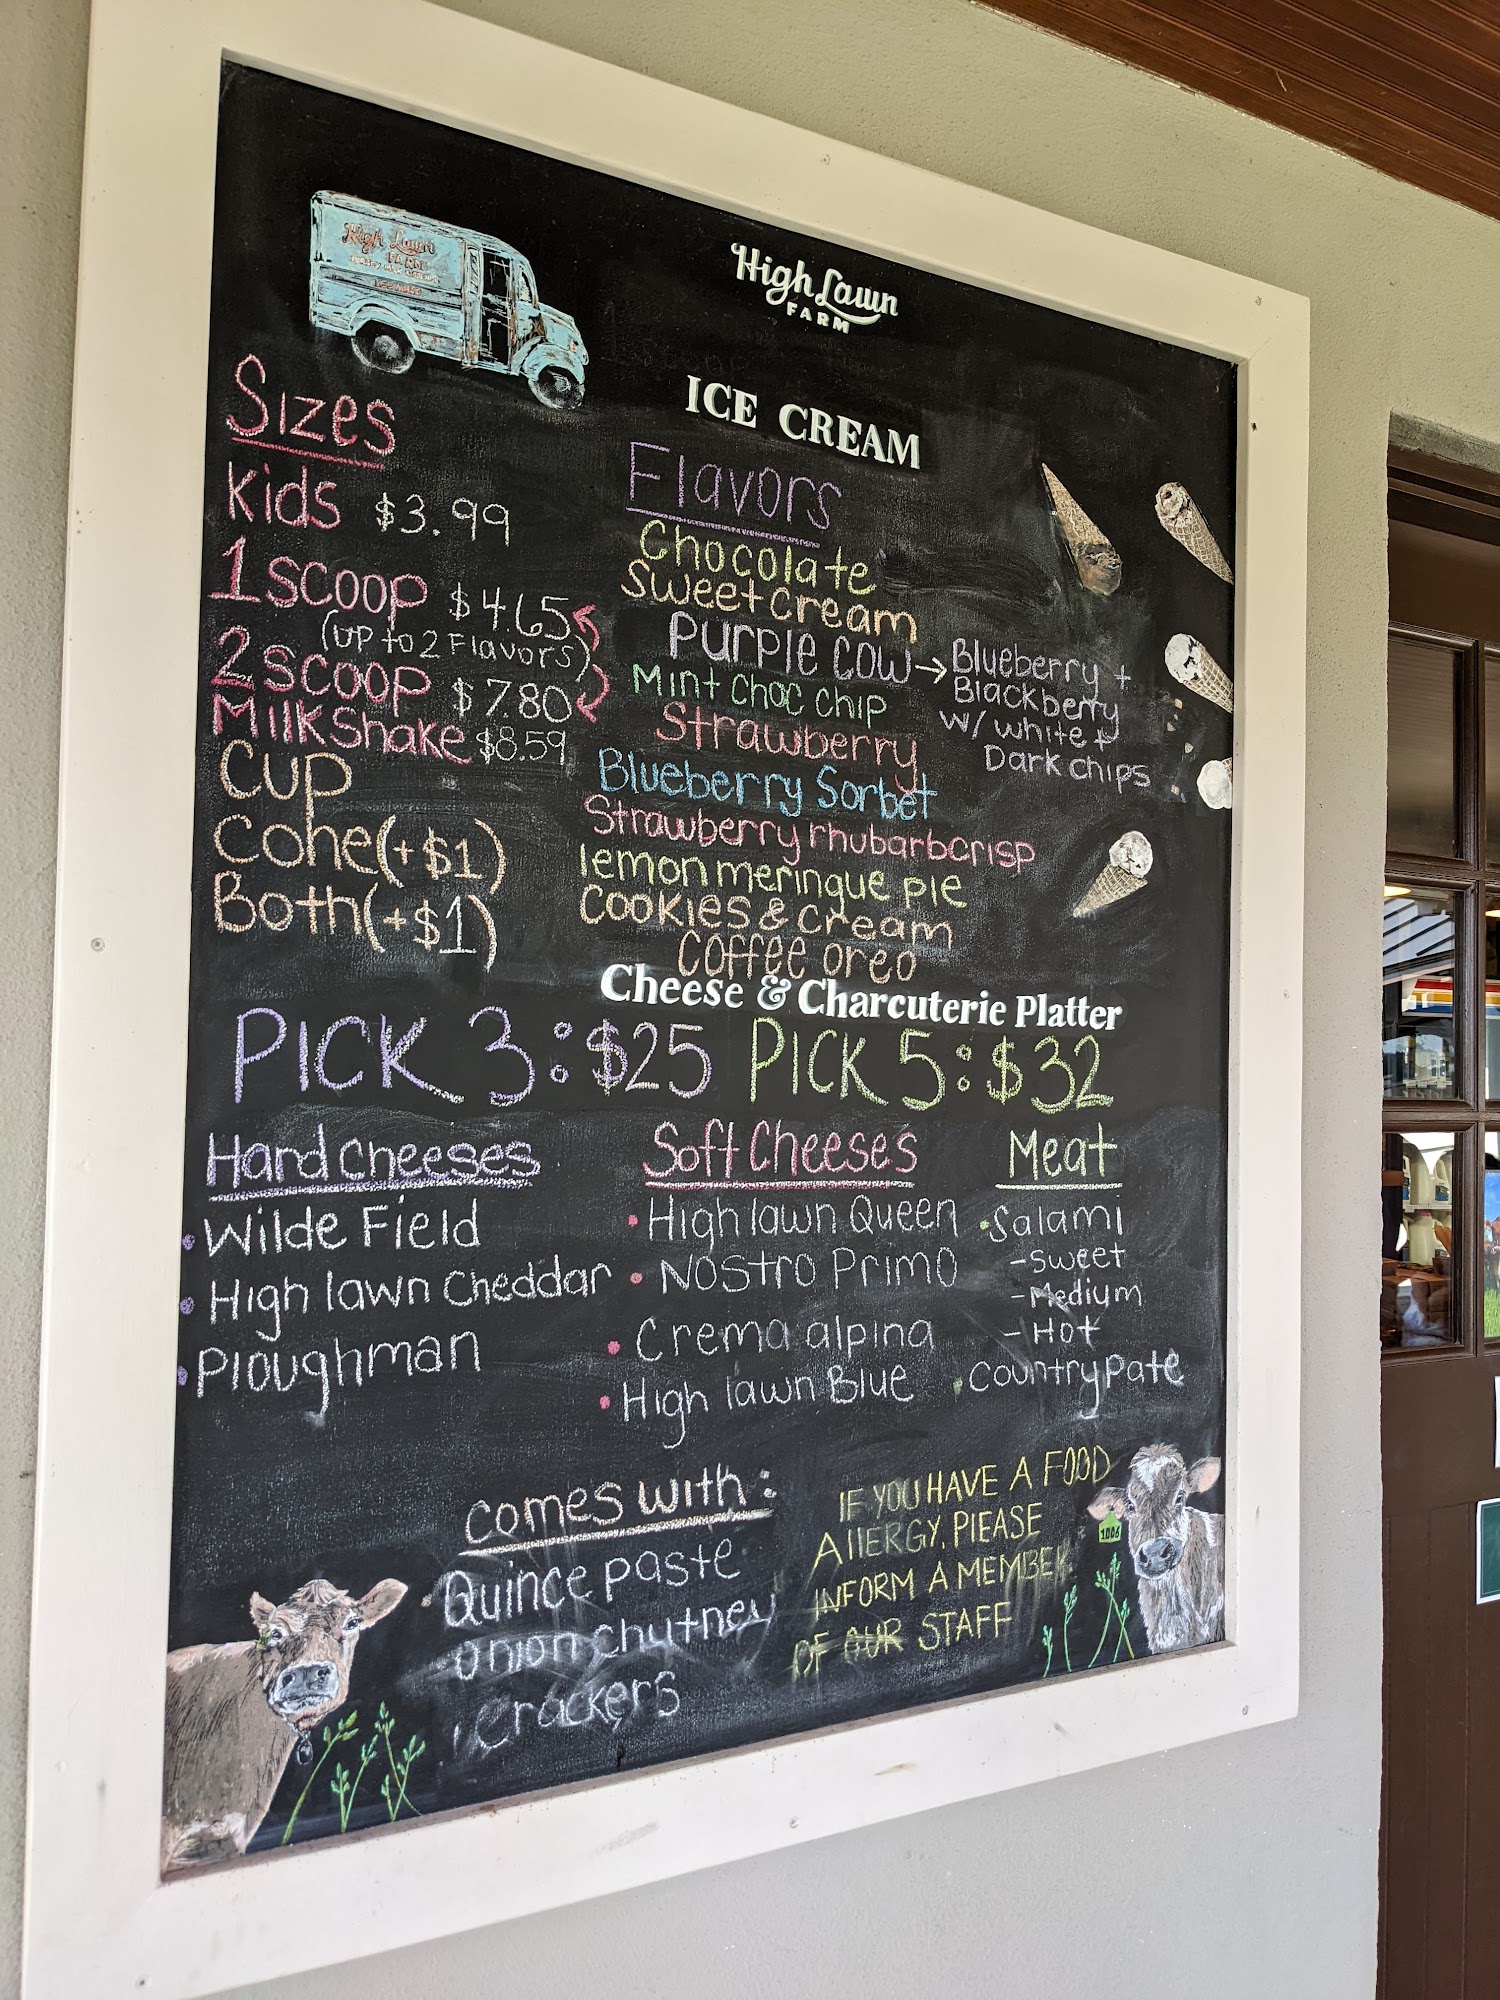 High Lawn
FARM
High Lawn
FARM
ICE CREAM
Sizes
Kids $3.99
1 scoop $4.65
(up to 2 Flavors)
2 scoop $7.80
Milkshake $8.59
Cup
Cone (+$1)
Both (+$1)
Flavors
Chocolate
Sweet cream
Purple cow → Blueberry +
Blackberry
w/ white +
Dark chips
Mint choc chip
Strawberry
Blueberry Sorbet
Strawberry rhubarb crisp
lemon meringue pie
Cookies & Cream
Coffee oreo
Cheese & Charcuterie Platter
PICK 3: $25 PICK 5: $32
Hard Cheeses
• Wilde Field
• High lawn Cheddar
• Ploughman
Soft Cheeses
• High lawn Queen
• Nostro Primo
• Crema alpina
• High lawn Blue
Meat
• Salami
- Sweet
- Medium
- Hot
• Country Pate
comes with:
• Quince paste
- onion chutney
• Crackers
IF YOU HAVE A FOOD
AllERGY, PlEASE
INFORM A MEMBER
OF OUR STAFF
1006